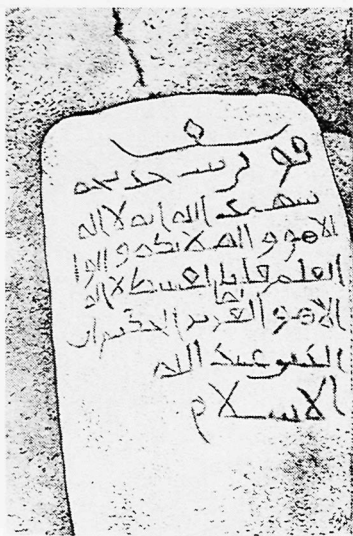 خديجه
شهد الله انه لا اله
الا هو و الملائكه و الوا
العلم قايما بالقسط لا اله
الا هو العزيز الحكيم ان
الدين عند الله
الاسلام